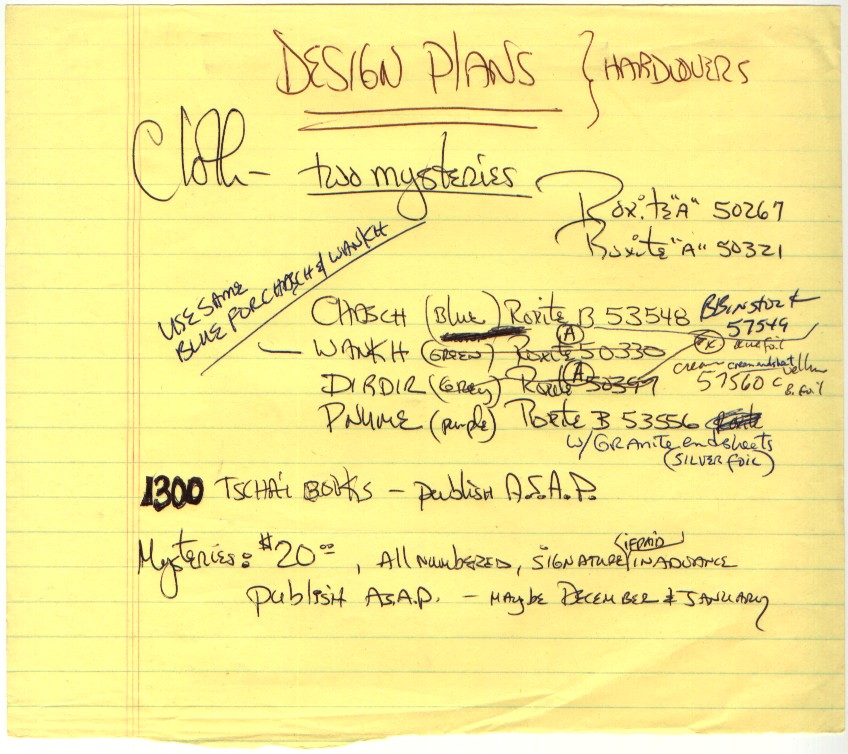 DESIGN PLANS } HARDCOVERS
Cloth – two mysteries
Roxite "A" 50267
Roxite "A" 50321
USE SAME
BLUE FOR CHASCH & WANKH
CHASCH (Blue) Roxite B 53548
BB in stock
57549
WANKH (GREEN) Roxite A 50330
blue foil
DIRDIR (Grey) Roxite A 50399
cream endsheet
57560 C vellum
B. foil
PNUME (purple) Roxite B 53556
w/ GRANITE endsheets
(SILVER FOIL)
1300 TSCHAI BOOKS – publish A.S.A.P.
Mysteries: $20⁰⁰, All NUMBERED, SIGNATURE (IF PAID) IN ADVANCE
publish A.S.A.P. – MAYBE DECEMBER & JANUARY